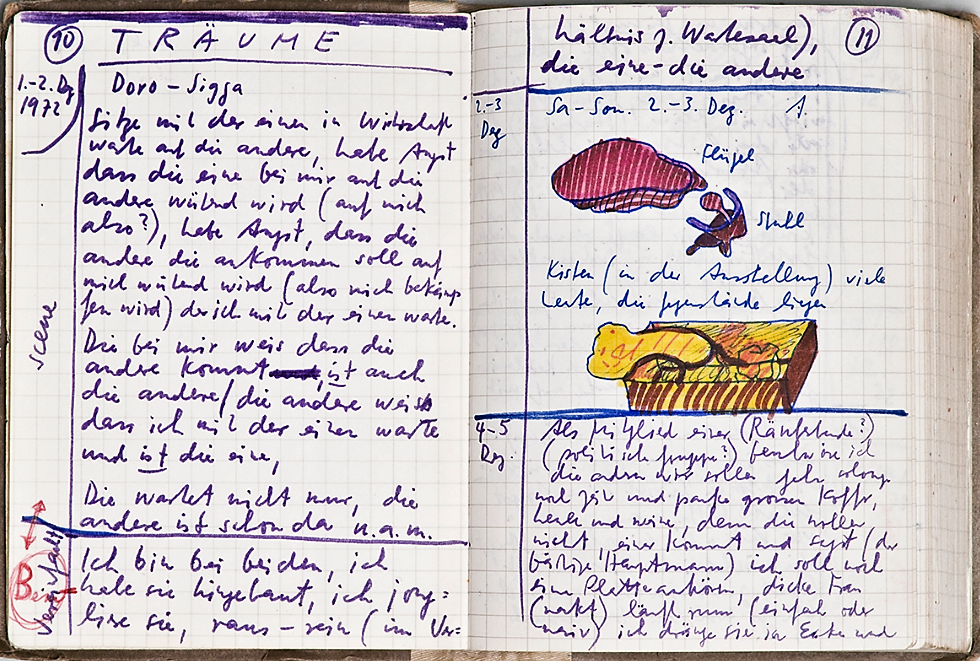 10
TRÄUME
1.-2. Dez
1972
Doro - Sigga
Sitze mit der einen in Wirtschaft
warte auf die andere, habe Angst
dass die eine bei mir auf die
andere wütend wird (auf mich
also?), habe Angst, dass die
andere die ankommen soll auf
mich wütend wird (also mich bekämp
fen wird) der ich mit der einen warte.
scene
Die bei mir weis dass die
andere kommt ist auch
die andere/die andere weis
dass ich mit der einen warte
und ist die eine,
Die wartet nicht nur, die
andere ist schon da u.a.m.
Ich bin bei beiden, ich
habe sie hingebaut, ich jong=
liere sie, raus - rein (im Ver=
11
hältnis z. Wartesaal),
die eine - die andere
2.-3
Dez
Sa - Son. 2.-3. Dez. 1.
Flügel
Stuhl
Kisten (in der Ausstellung) viele
Leute, die Gegenstände liegen
4-5
Dez.
Als Mitglied einer (Räuberbande?)
(politische Gruppe?) ich
die andern wir sollen gehn solang
noch Zeit und packe grossen Koffer,
heule und weine, denn die wollen
nicht, einer kommt und sagt (der
bärtige Hauptmann) ich soll noch
eine Platte anhörn, dicke Frau
(nackt) läuft rum (einfach oder
naiv) ich dränge sie in Ecke und